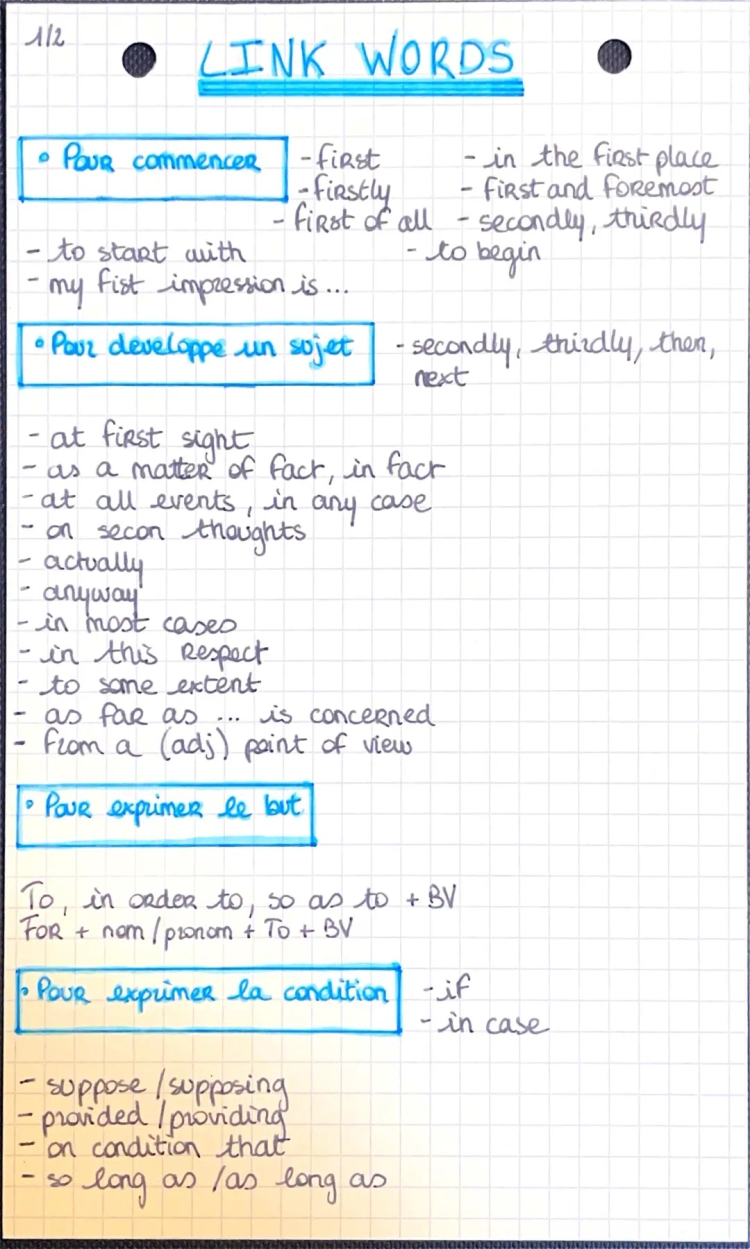 1/2
LINK WORDS
• Pour commencer
- first - in the first place
- firstly - first and foremost
- first of all - secondly, thirdly
- to start with - to begin
- my fist impression is ...
• Pour developpe un sujet
- secondly, thirdly, then,
next
- at first sight
- as a matter of fact, in fact
- at all events, in any case
- on secon thoughts
- actually
- anyway
- in most cases
- in this respect
- to some extent
- as far as ... is concerned
- from a (adj) point of view
• Pour exprimer le but
To, in order to, so as to + BV
For + nom/pronom + To + BV
• Pour exprimer la condition
- if
- in case
- suppose / supposing
- provided / providing
- on condition that
- so long as / as long as